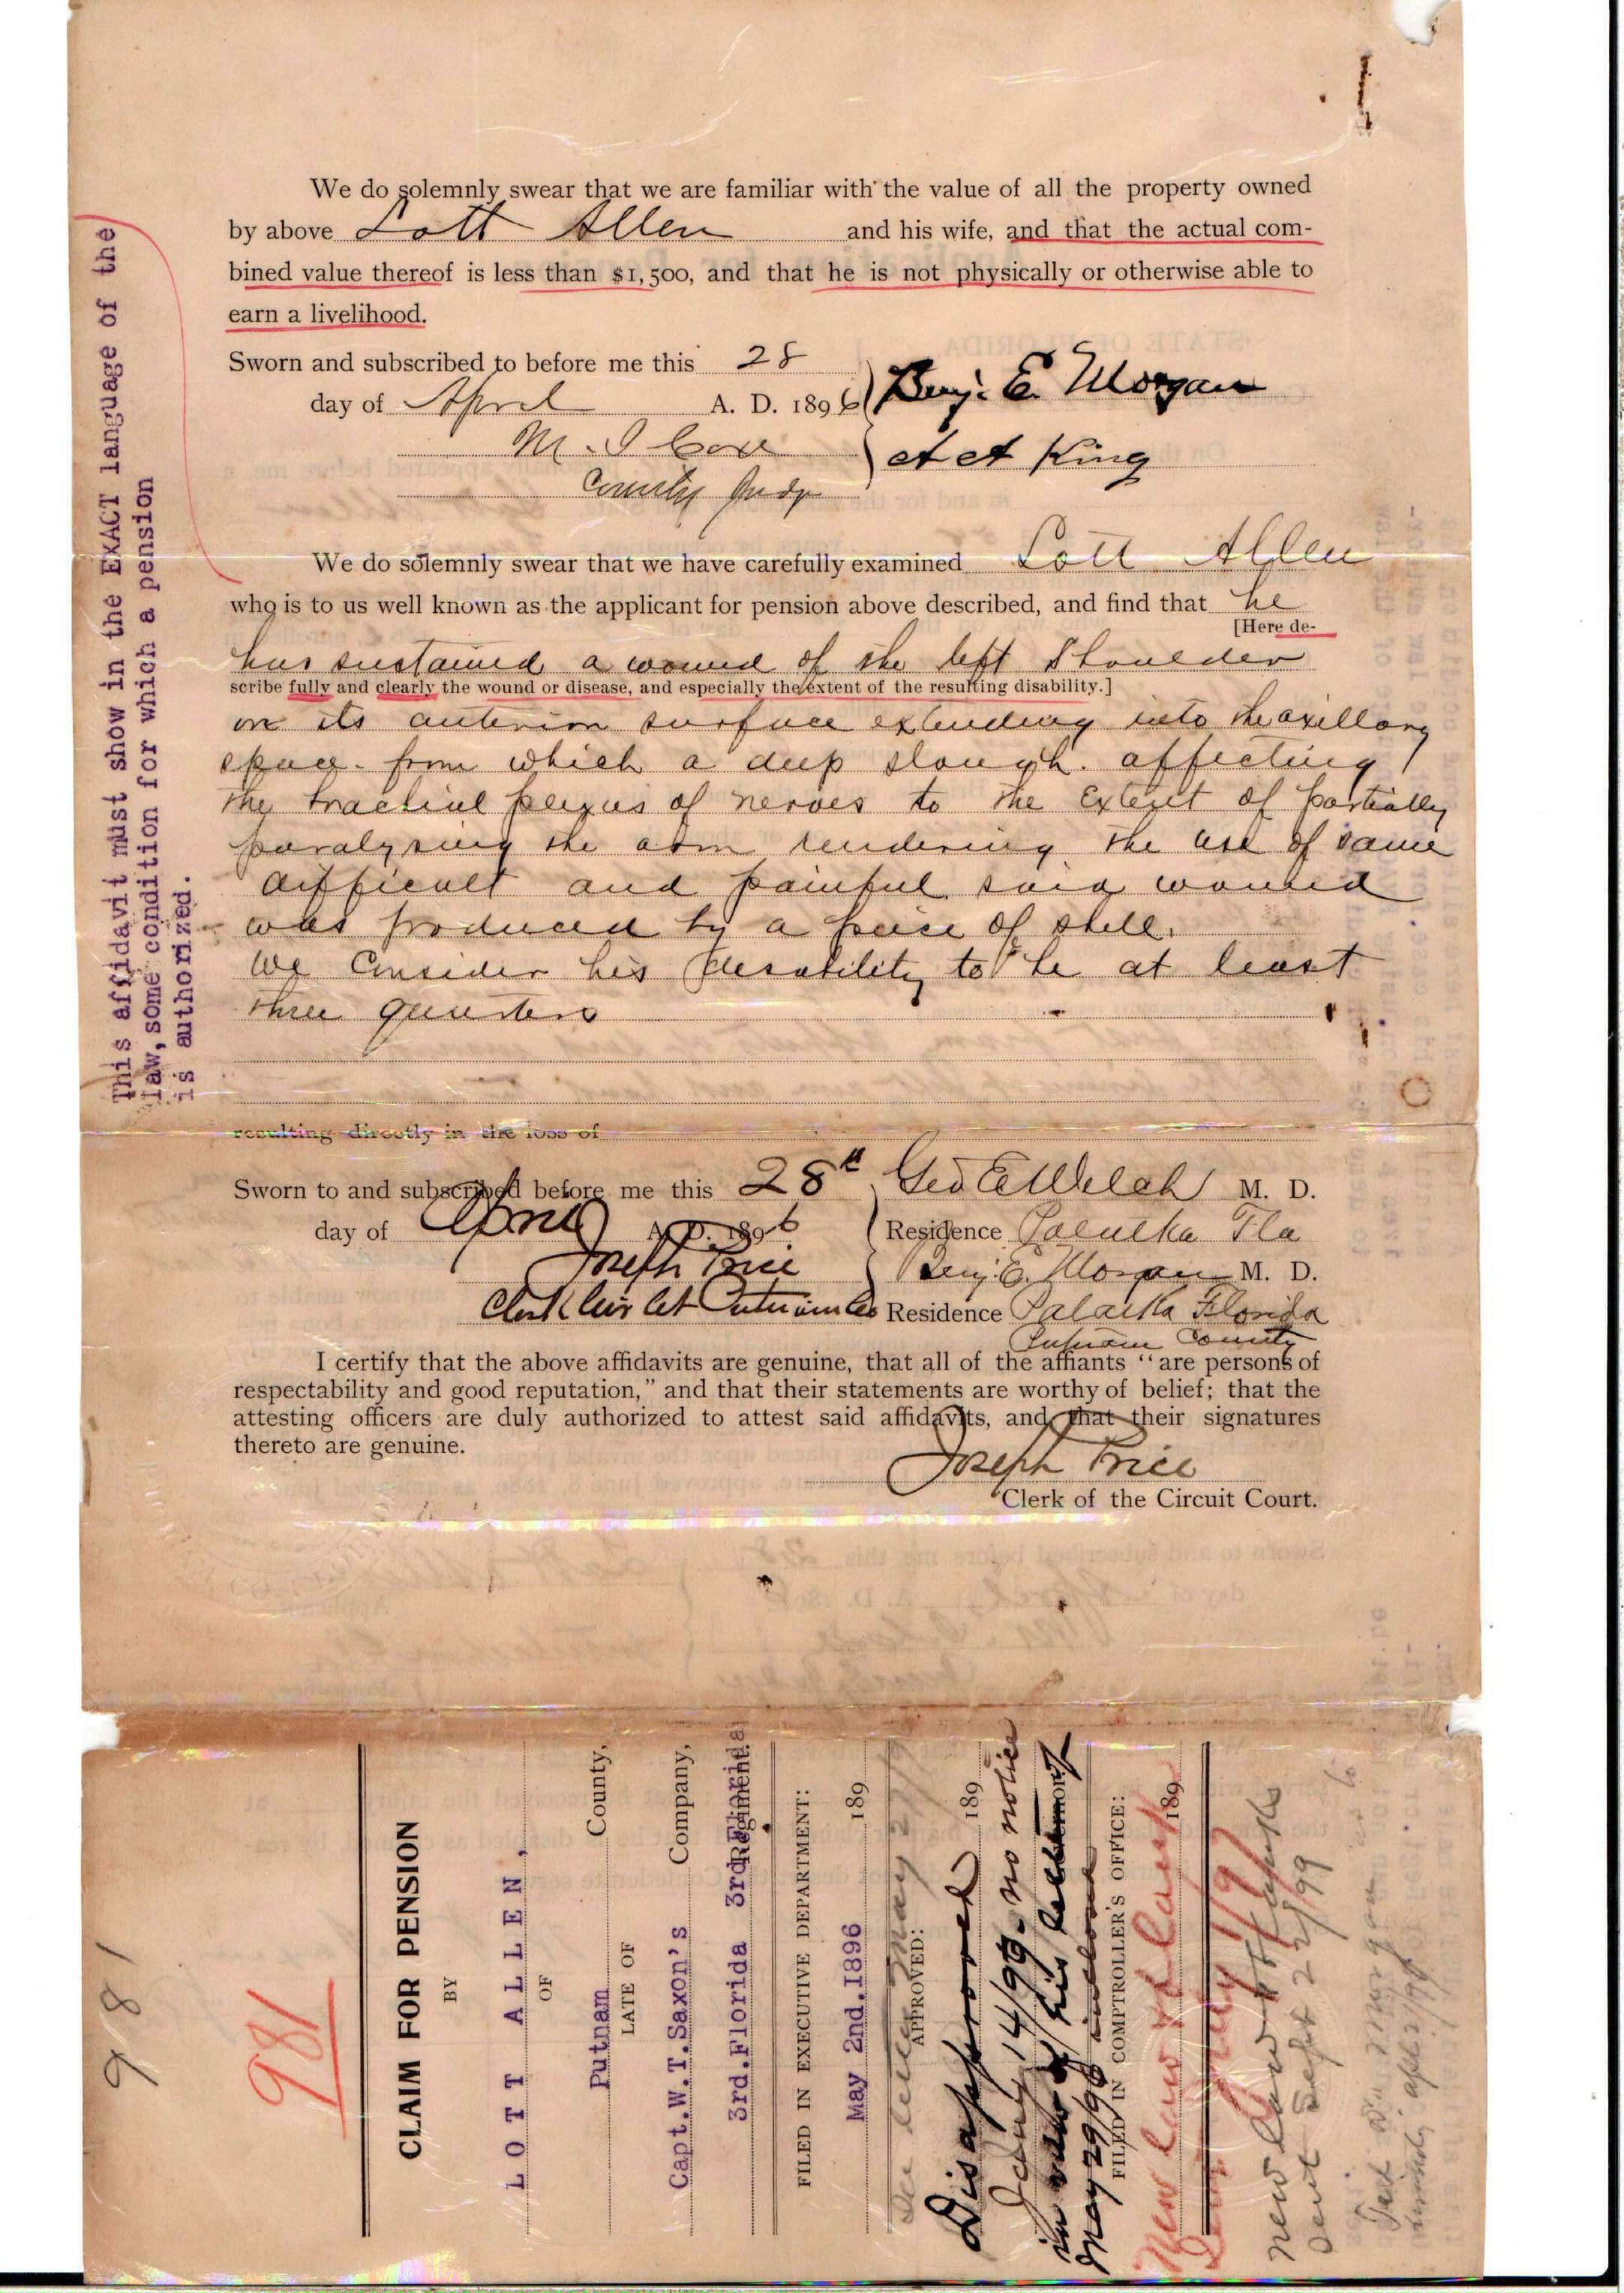 We do solemnly swear that we are familiar with the value of all the property owned
by above Lott Allen and his wife, and that the actual com-
bined value thereof is less than $1,500, and that he is not physically or otherwise able to
earn a livelihood.
Sworn and subscribed to before me this 28
day of April A. D. 1896
Benj. E. Morgan
M. I Coxe
A A King
County Judge
We do solemnly swear that we have carefully examined Lott Allen
who is to us well known as the applicant for pension above described, and find that he
[Here de-
has sustained a wound of the left Shoulder
scribe fully and clearly the wound or disease, and especially the extent of the resulting disability.]
on its anterior surface extending into the axillary
space - from which a deep slough. affecting
the brachial plexus of nerves to the extent of partially
paralyzing the arm rendering the use of same
difficult and painful said wound
was produced by a peice of shell.
We Consider his desability to be at least
three quarters
resulting directly in the loss of
Sworn to and subscribed before me this 28th
Geo E Welch M. D.
day of April A. D. 1896
Residence Palatka Fla
Joseph Price
Benj. E. Morgan M. D.
Clerk Cir Ct Putnam Co
Residence Palatka Florida
Putnam County
I certify that the above affidavits are genuine, that all of the affiants "are persons of
respectability and good reputation," and that their statements are worthy of belief; that the
attesting officers are duly authorized to attest said affidavits, and that their signatures
thereto are genuine.
Joseph Price
Clerk of the Circuit Court.
This affidavit must show in the EXACT language of the
law, some condition for which a pension
is authorized.
981
981
CLAIM FOR PENSION
BY
LOTT ALLEN,
OF
Putnam County,
LATE OF
Capt.W.T.Saxon's Company,
3rd.Florida 3rd.Florida Regiment.
FILED IN EXECUTIVE DEPARTMENT:
May 2nd.1896 189
See letter May 27/9
APPROVED:
Disapproved 189
July 14/96. no notice
in view of his testimony
May 29/96 inclosed
FILED IN COMPTROLLER'S OFFICE:
189
New law & blank
Sent July 1/97
New law & blanks
Sent Sept 22/99